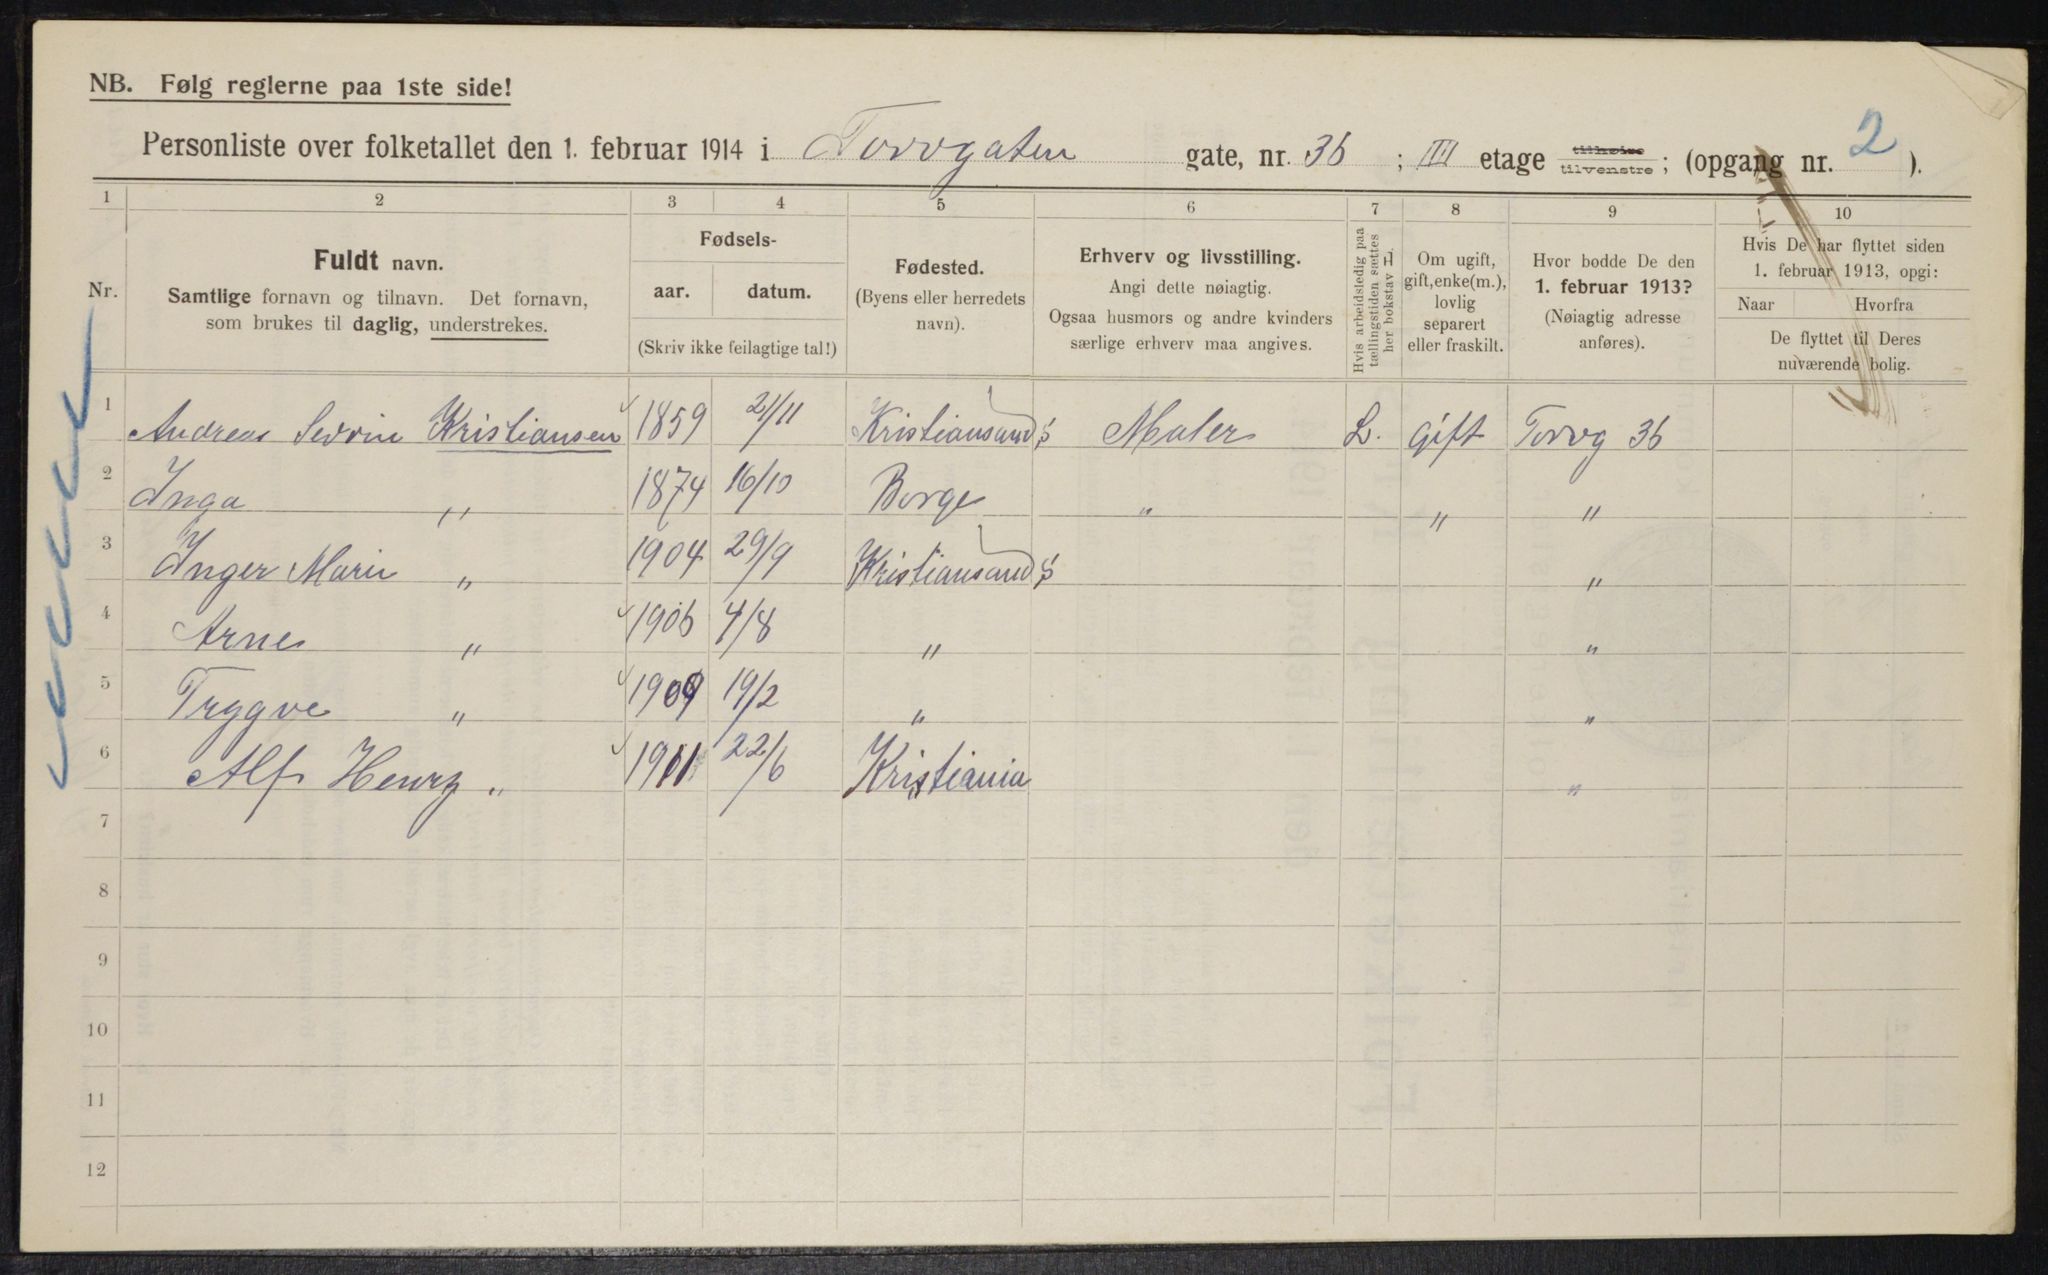 NB. Følg reglerne paa 1ste side!
Personliste over folketallet den 1. februar 1914 i Torvgaten gate, nr. 36; III etage tilhøire tilvenstre; (opgang nr. 2).
1 2 3 4 5 6 7 8 9 10
Nr.
Fuldt navn.
Samtlige fornavn og tilnavn. Det fornavn,
som brukes til daglig, understrekes.
Fødsels-
aar. datum.
(Skriv ikke feilagtige tal!)
Fødested.
(Byens eller herredets
navn).
Erhverv og livsstilling.
Angi dette nøiagtig.
Ogsaa husmors og andre kvinders
særlige erhverv maa angives.
Hvis arbeidsledig paa
tællingstiden sættes
her bokstav L.
Om ugift,
gift, enke(m.),
lovlig
separert
eller fraskilt.
Hvor bodde De den
1. februar 1913?
(Nøiagtig adresse
anføres).
Hvis De har flyttet siden
1. februar 1913, opgi:
Naar Hvorfra
De flyttet til Deres
nuværende bolig.
1 Andreas Servin Kristiansen 1859 21/11 Kristiansand S Maler L. gift Torvg 36
2 Inga " 1874 16/10 Borge " " "
3 Inger Marie " 1904 29/9 Kristiansand S "
4 Arne " 1906 4/8 " "
5 Trygve " 1909 19/2 " "
6 Alf Henry " 1911 22/6 Kristiania "
7
8
9
10
11
12